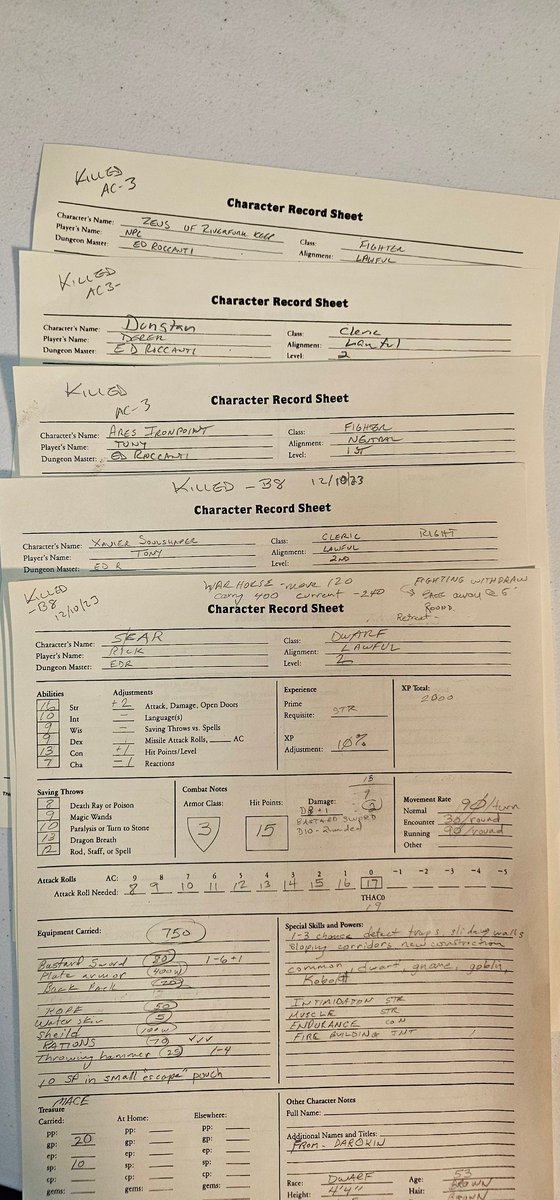 KILLED
AC-3
Character Record Sheet
Character's Name: ZEUS OF RIVERFORK KEEP
Class: FIGHTER
Player's Name: NPC
Alignment: LAWFUL
Dungeon Master: ED ROCCANTI
KILLED
AC3-
Character Record Sheet
Character's Name: Dungtan
Class: Cleric
Player's Name: DEREK
Alignment: Lawful
Dungeon Master: ED ROCCANTI
Level: 2
KILLED
AC-3
Character Record Sheet
Character's Name: ARES IRONPOINT
Class: FIGHTER
Player's Name: TONY
Alignment: NEUTRAL
Dungeon Master: ED ROCCANTI
Level: 1ST
KILLED -B8 12/10/23
Character Record Sheet
Character's Name: XAVIER SOULSHAPER
Class: CLERIC RIGHT
Player's Name: TONY
Alignment: LAWFUL
Dungeon Master: ED R
Level: 2ND
KILLED
-B8
12/10/23
WAR HORSE - MOVE 120
carry 400 current -240
FIGHTING WITHDRAW
BACK away @ 5'
ROUND
Retreat-
Character Record Sheet
Character's Name: SKAR
Class: DWARF
Player's Name: RICK
Alignment: LAWFUL
Dungeon Master: EDR
Level: 2
Abilities
Adjustments
16 Str +2 Attack, Damage, Open Doors
10 Int - Language(s)
9 Wis - Saving Throws vs. Spells
9 Dex - Missile Attack Rolls, AC
13 Con +1 Hit Points/Level
7 Cha -1 Reactions
Experience
Prime
Requisite: STR
XP
Adjustment: 10%
XP Total:
2000
Saving Throws
8 Death Ray or Poison
9 Magic Wands
10 Paralysis or Turn to Stone
13 Dragon Breath
12 Rod, Staff, or Spell
Combat Notes
Armor Class: 3
Hit Points: 15
Damage:
D8 +1
BASTARD SWORD
D10 - 2handed
Movement Rate
Normal 90/turn
Encounter 30/round
Running 90/round
Other
Attack Rolls AC: 9 8 7 6 5 4 3 2 1 0 -1 -2 -3 -4 -5
Attack Roll Needed: 8 9 10 11 12 13 14 15 16 17
THAC0
19
Equipment Carried: 750
Bastard Sword 80 1-6+1
Plate armor 400w
Back Pack 20
ROPE 50
Water skin 5
Sheild 100w
RATIONS 70
Throwing hammer 25 1-4
10 SP in small "escape" pouch
MACE
Special Skills and Powers:
1-3 chance detect traps, sliding walls
sloping corridors, new constrction
common, dwarf, gnome, goblin,
Kobold
INTIMIDATON STR
MUSCLE STR
ENDURANCE CON
FIRE BUILDING INT
Treasure
Carried:
At Home:
Elsewhere:
pp: pp: pp:
gp: 20 gp: gp:
ep: ep: ep:
sp: 10 sp: sp:
cp: cp: cp:
gems: gems: gems:
Other Character Notes
Full Name:
Additional Names and Titles:
FROM- DAROKIN
Race: DWARF
Age: 53
Height: 4'4"
Hair: BROWN